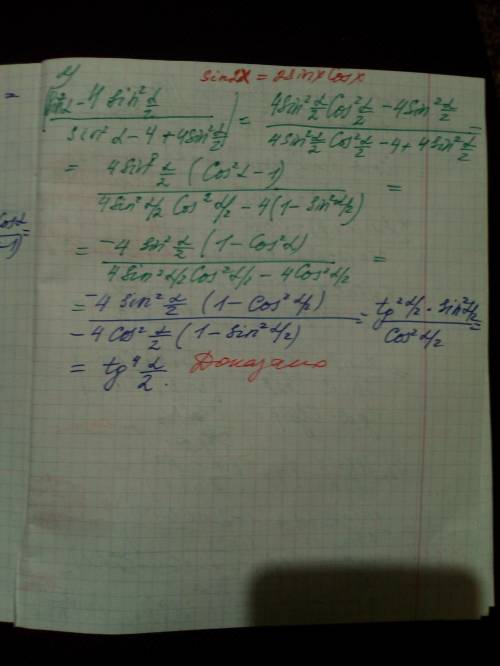 sin2x = 2sinxcosx
sin²α - 4 sin²α/2 / sin²α - 4 + 4sin²α/2 = 4sin²α/2 cos²α/2 - 4sin²α/2 / 4sin²α/2 cos²α/2 - 4 + 4sin²α/2 =
= 4sin²α/2 (cos²α - 1) / 4sin²α/2 cos²α/2 - 4(1 - sin²α/2) =
= -4 sin²α/2 (1 - cos²α) / 4sin²α/2 cos²α/2 - 4cos²α/2 =
= -4 sin²α/2 (1 - cos²α/2) / -4cos²α/2 (1 - sin²α/2) = tg²α/2 · sin²α/2 / cos²α/2 =
= tg⁴α/2. Доказано